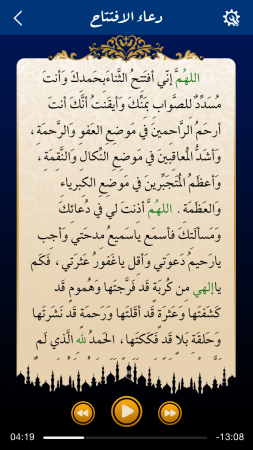 دعاء الافتتاح
اللهُمَّ إنّي أفتَتِحُ الثَّناءَ بِحَمدِكَ وَأنتَ
مُسَدِّدٌ للصَّوابِ بِمَنِّكَ وَأيقَنتُ أنَّكَ أنتَ
أرحَمُ الرَّاحمينَ في مَوضِعِ العَفوِ والرَّحمَةِ،
وَأشَدُّ المُعاقِبينَ في مَوضِعِ النِّكالِ والنَّقِمَةِ،
وَأعظَمُ المُتَجَبِّرينَ في مَوضِعِ الكبرياء
والعَظَمَةِ . اللهُمَّ أذنتَ لي في دُعائِكَ
وَمَسألتكَ فأسمَع ياسَميعُ مدحَتي وَأجِب
يارَحيمُ دَعوَتي وَأقِل ياغَفورُ عَثرَتي، فَكَم
ياإلهي مِن كُربَة قَد فَرَّجتَها وَهُمومٍ قَد
كَشَفتَها وَعَثرَةٍ قَد أقَلتَها وَرَحمَة قَد نَشَرتَها
وَحَلقَةِ بَلاٍ قَد فَكَكتَها، الحَمدُ لله الَّذي لَم
04:19
-13:08